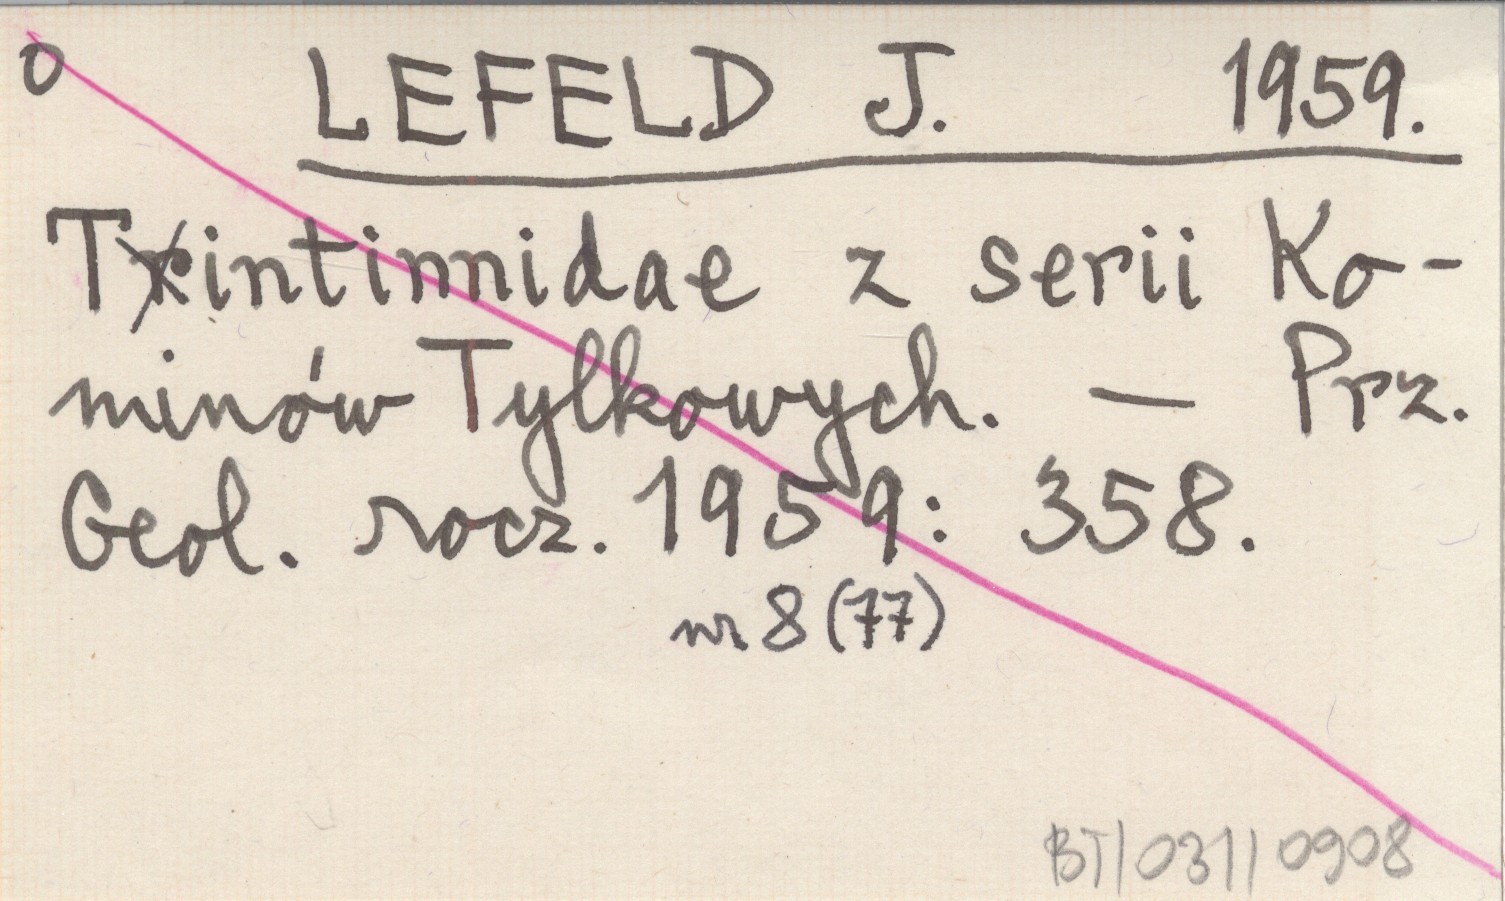 o LEFELD J. 1959.
Tintinnidae z serii Ko-
minów Tylkowych. — Prz.
Geol. rocz. 1959: 358.
nr 8 (77)
BT/031/0908